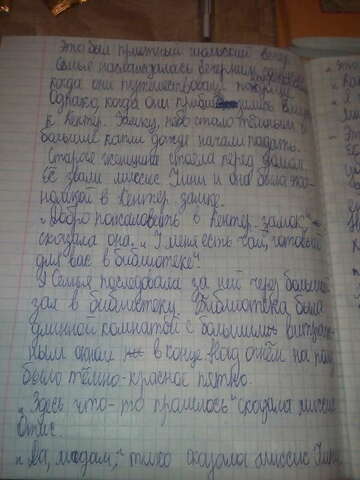 Это был приятный июльский вечер.
Семья наслаждалась вечерним
когда они путешествовали
Однако, когда они приблизились
к Кентер. Замку, небо стало тёмным и
большие капли дождя начали падать.
Старая женщина стояла перед
Её звали миссис Умни и она была эко-
номкой в Кентер. замке.
„Добро пожаловать в Кентер. замок,"
сказала она. „У меня есть чай, готовый
для вас в библиотеке".
Семья последовала за ней через большой
зал в библиотеку. Библиотека была
длинной комнатой с большим
окном в конце. Под огнём на полу
было тёмно-красное пятно.
„Здесь что-то пролилось" сказала миссис
Отис.
„Да, мадам," тихо сказала миссис Умни,